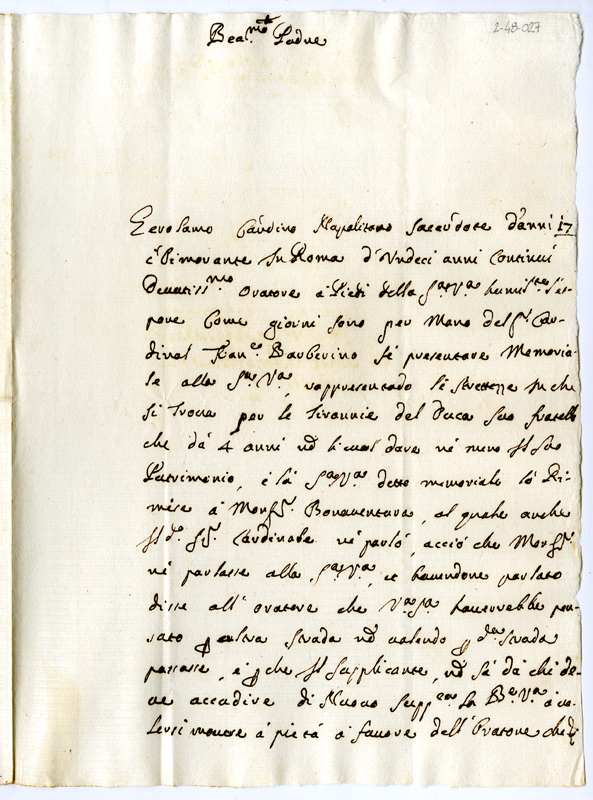 2-48-027
Bea.mo Padre
Gerolamo Cardino Napolitano Sacerdote d'anni 17
e Dimorante In Roma d'Undeci anni Continui
Devotiss.mo Oratore a Piedi della S.tà V.a humil.te l'es-
pone Come giorni sono per Mano del S.r Car-
dinal Fran.co Barberino fé presentare Memoria-
le alla S.tà V.a, rappresentado le strettezze In che
si Trova per le Tirannie del Duca suo fratello
che da 4 anni nō li vuol dare né meno Il suo
Patrimonio, e la S.tà V.a detto memoriale lo Ri-
mise a Mons.r Bonaventura, al quale anche
Il d.o S.r Cardinale né parlò, acciò che Mons.r
né parlasse alla S.tà V.a, et havendone parlato
disse all'oratore che V.a S.tà haverrebbe pen-
sato p altra strada nō volendo p d.a strada
passare, e p che Il supplicante, nō sà da chi de-
ve accadire di Nuovo supp.ca la B.e V.a a vo-
lersi movere a pietà a favore dell'Oratore che